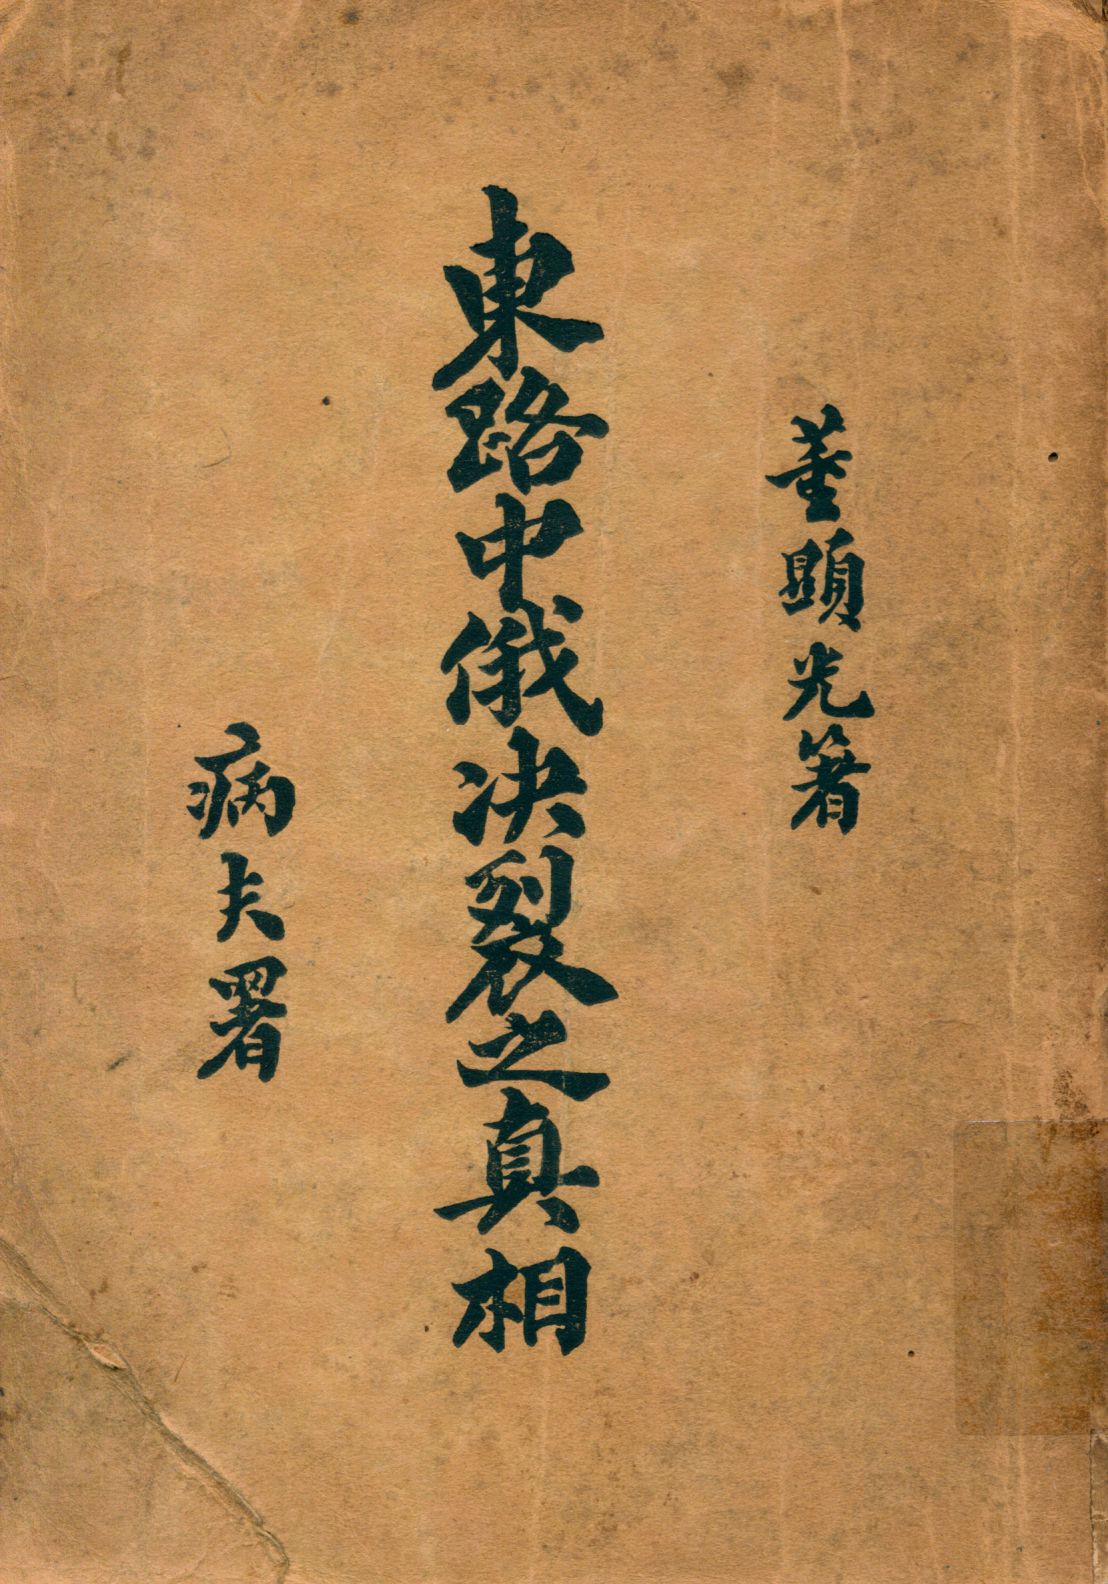 董顕光著
東路中俄決裂之真相
病夫署